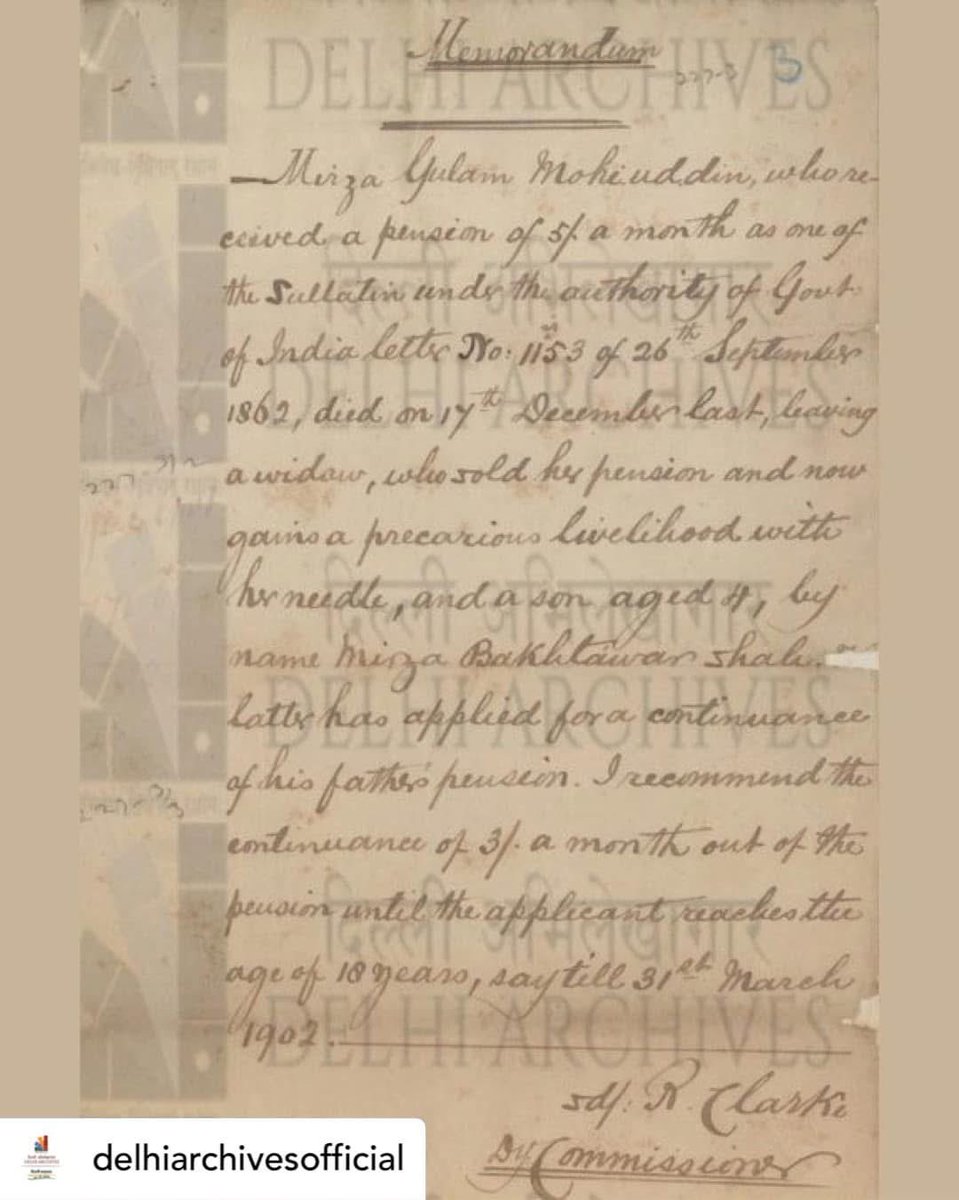 Memorandum
3
DELHI ARCHIVES
Mirza Gulam Mohiuddin, who re-
ceived a pension of 5/. a month as one of
the Sullatin under the authority of Govt.
of India letter No: 1153 of 26th September
1862, died on 17th December last, leaving
a widow, who sold her pension and now
gains a precarious livelihood with
her needle, and a son aged 4, by
name Mirza Bakhtawar Shah.
latter has applied for a continuance
of his father's pension. I recommend the
continuance of 3/. a month out of the
pension until the applicant reaches the
age of 18 years, say till 31st March
1902.
sd/. R. Clarke
Dy. Commissioner
दिल्ली अभिलेखागार
DELHI ARCHIVES
दिल्ली अभिलेखागार
DELHI ARCHIVES
दिल्ली अभिलेखागार
DELHI ARCHIVES
delhiarchivesofficial